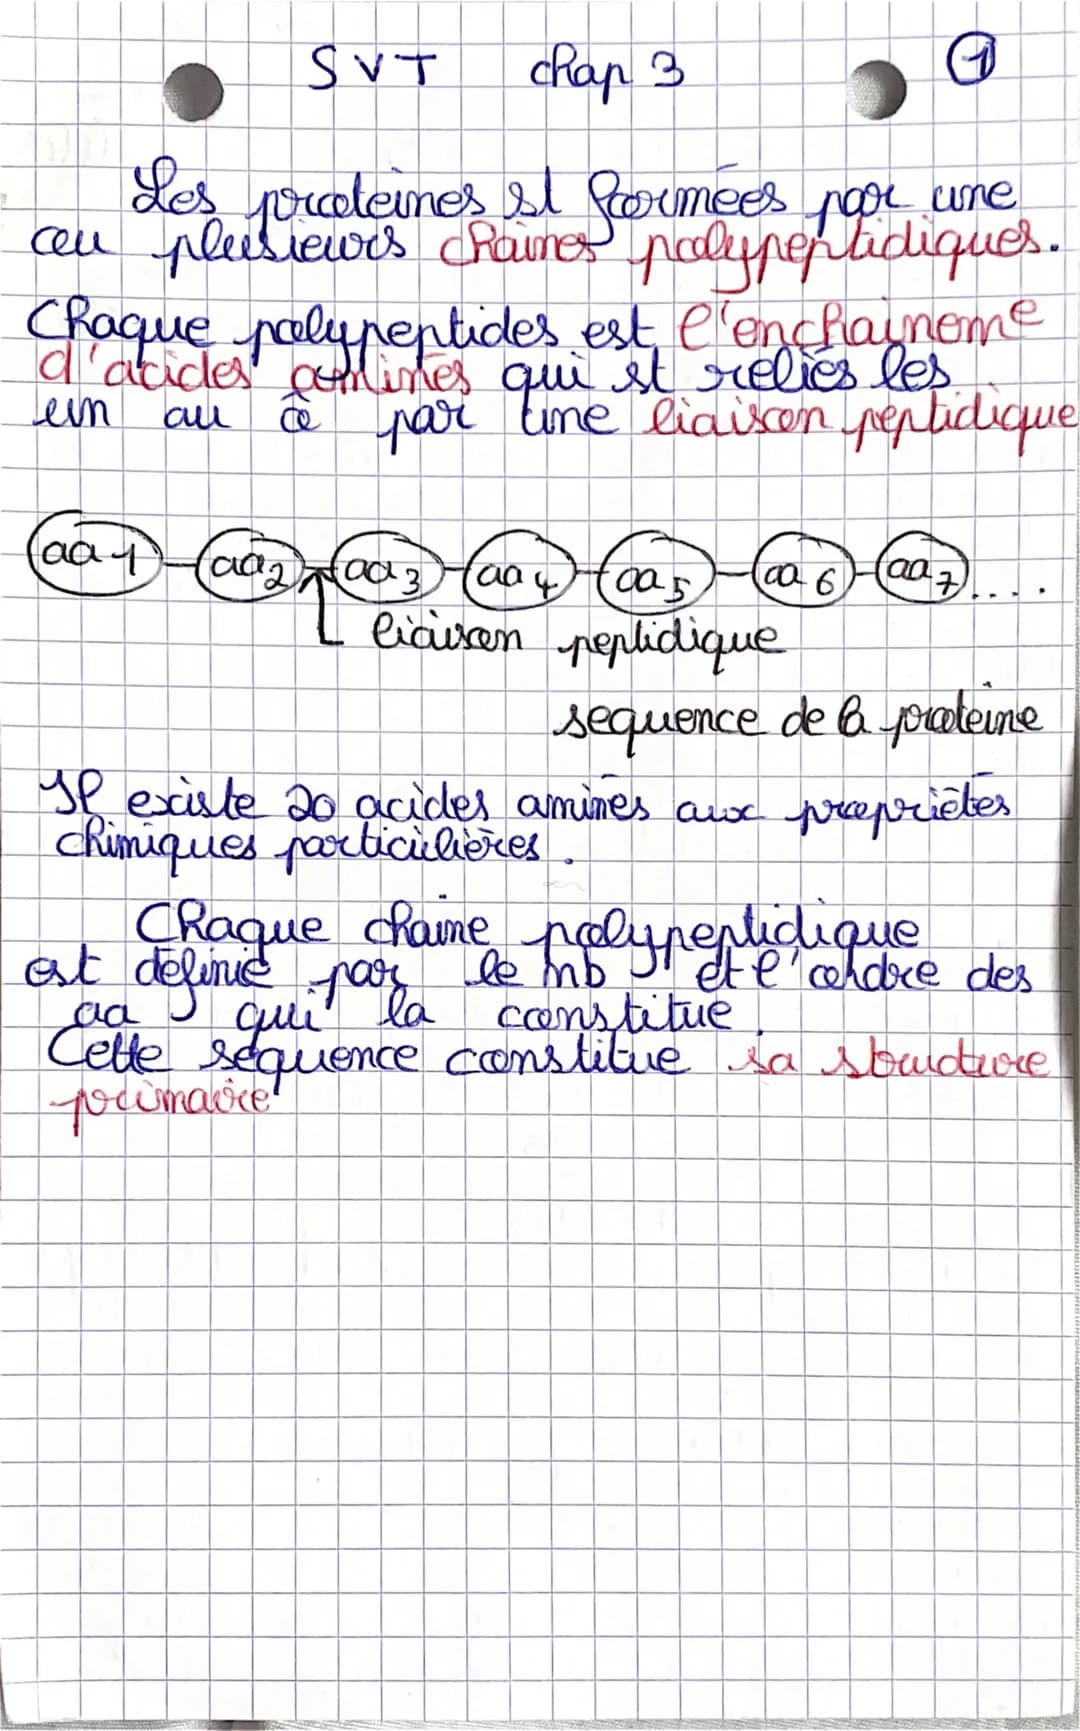 SVT chap 3 1
Les proteines st formées par une
ou plusieurs chaines polypeptidiques.
Chaque polypeptides est l'enchaineme
d'acides aminés qui st reliés les
un au par une liaison peptidique
aa 1 aa 2 aa 3 aa 4 aa 5 aa 6 aa 7 ....
liaison peptidique
sequence de la proteine
Il existe 20 acides aminés aux propriétés
chimiques particulières.
Chaque chaine polypeptidique
est définie par le nb et l'ordre des
aa qui la constitue.
Cette séquence constitue sa structure
primaire